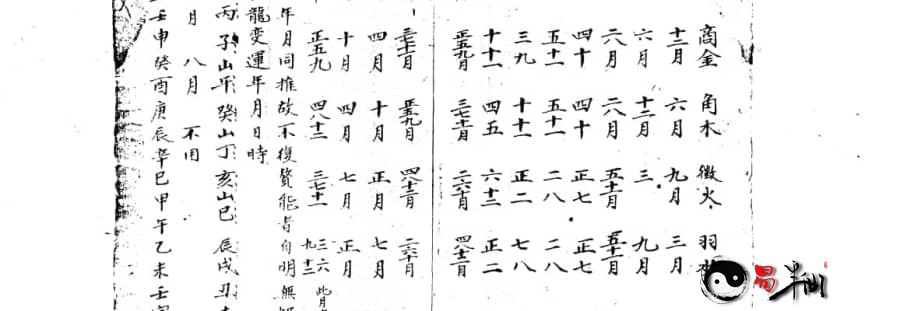 商金 角木 徵火 羽
十二月 六月 九月 三月
六月 十二月 三 九月
六月 六月 五十一月 五十一月
四十 四十 正七 正七
五十一 五十一 二八 二八
三九 十十一 正二 七八
十十一 四五 六十二 正二
正五九月 三七十一月 二六十月 四八十二月
三七十一月 正五九月 四八十二月 二六十月
四月 十月 正月 七月
十月 四月 七月 正月
正五九 四八十二 三七十一 三六九十二 此月
年月同推故不復贅能者自明無
龍变運年月日時
丙子山平癸山丁亥山巳 辰戌丑
月 八月 不用
壬申癸酉庚辰辛巳甲午乙未壬寅
易